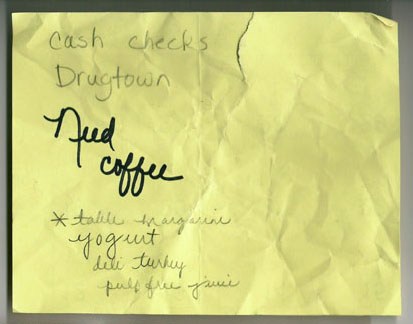 cash checks
Drugtown
Need
coffee
* table margarine
yogurt
deli turkey
pulp free juice